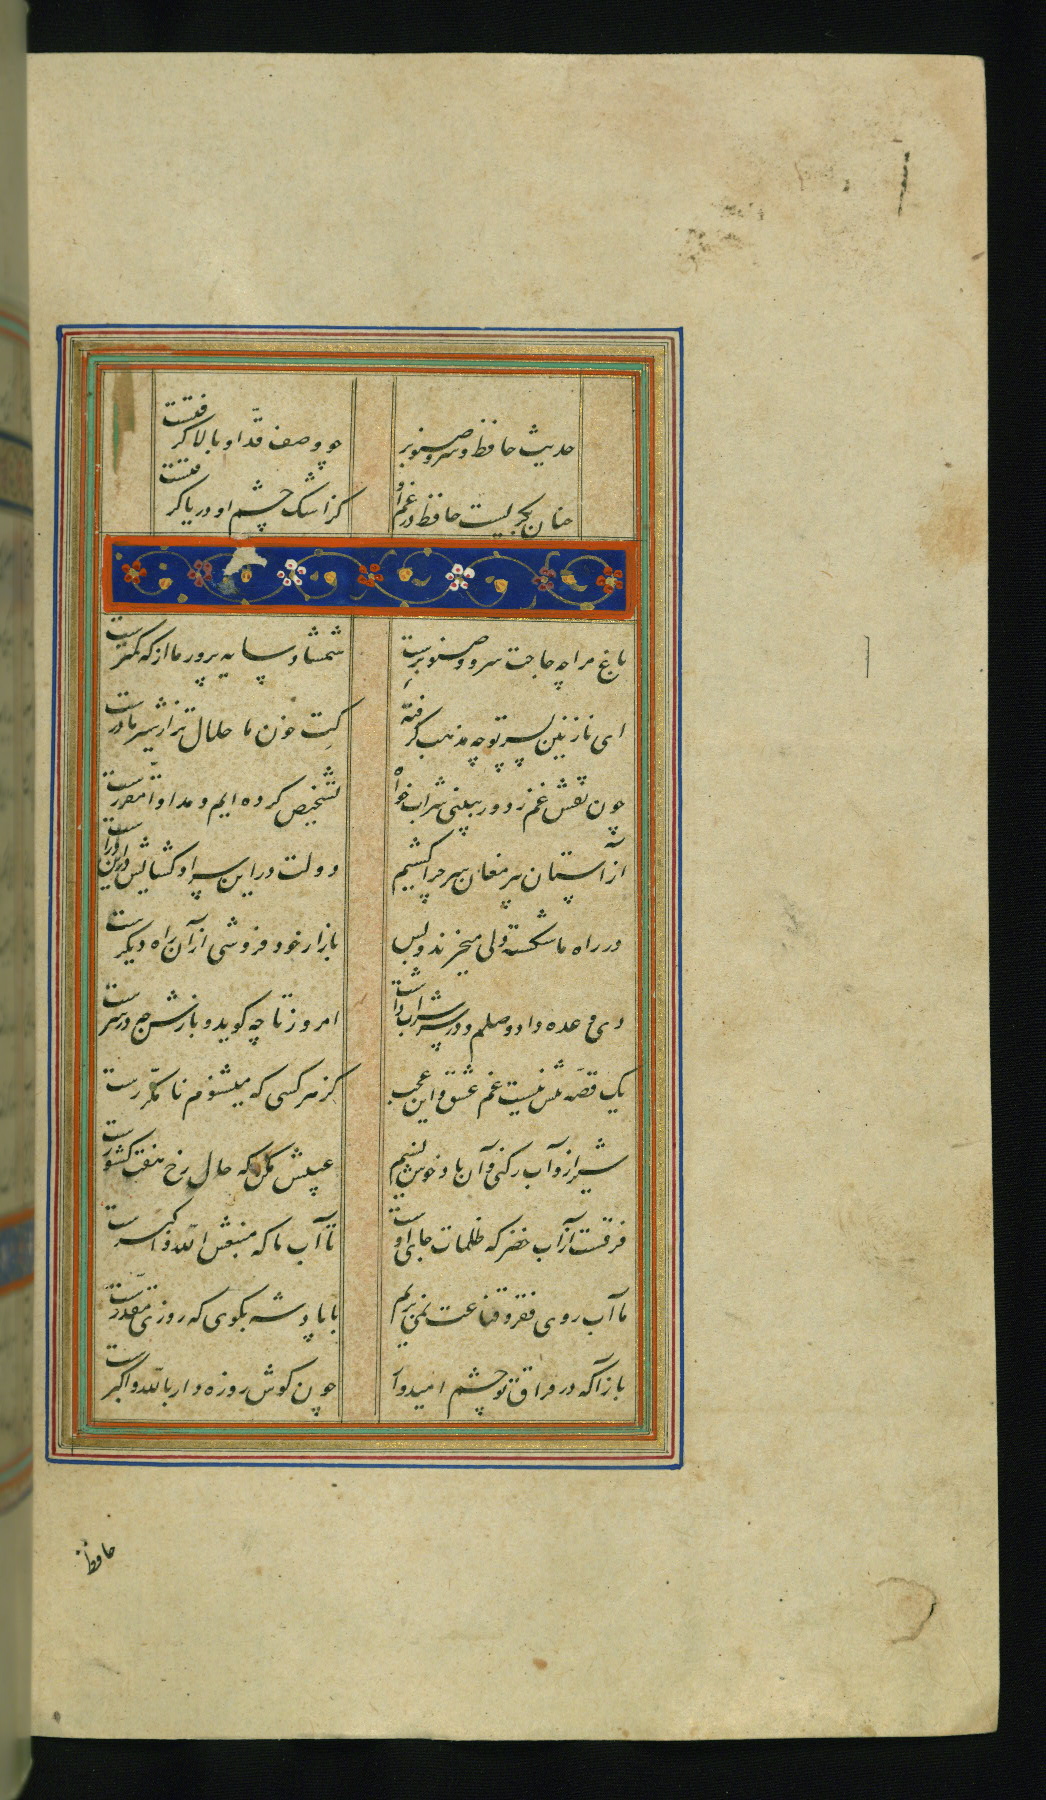 حدیث حافظ و سرو صنوبر
چو وصف قدّ او بالا گرفتست
چنان بحریست حافظ در غم او
کز اشک چشم او دریا گرفتست
باغ مرا چه حاجت سرو و صنوبرست
شمشاد سایه پرور ما از که کمترست
ای نازنین پسر تو چه مذهب گرفتهٔ
کت خون ما حلال تر از شیر مادرست
چون نقش غم ز دور ببینی شراب خواه
تشخیص کرده ایم و مداوا مقررست
از آستان پیر مغان سر چرا کشیم
دولت در این سرا و گشایش در این درست
در راه ما شکسته دلی میخرند و بس
بازار خود فروشی از آن راه دیگرست
دی وعده داد وصلم و در سر شراب داشت
امروز تا چه گوید و بازش چه در سرست
یک قصّه بیش نیست غم عشق و این عجب
کز هر کسی که میشنوم نامکرّرست
شیراز و آب رکنی و آن باد خوش نسیم
عیبش مکن که خال رخ هفت کشورست
فرقست از آب خضر که ظلمات جای اوست
تا آب ما که منبعش الله و اکبرست
ما آب روی فقر و قناعت نمی بریم
با پادشه بگوی که روزی مقدّرست
بازآ که در فراق تو چشم امیدوار
چون گوش روزه دار بالله و اکبرست
حافظ